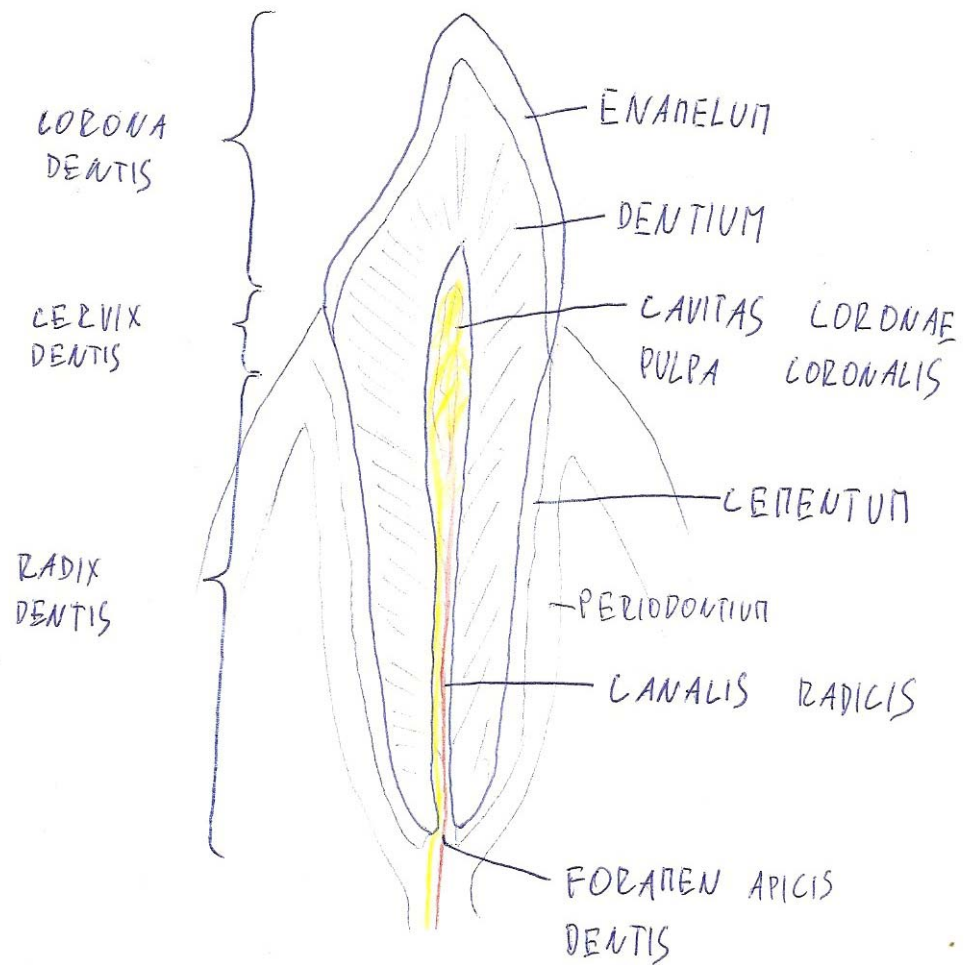 CORONA
DENTIS
CERVIX
DENTIS
RADIX
DENTIS
ENAMELUM
DENTIUM
CAVITAS CORONAE
PULPA CORONALIS
CEMENTUM
PERIODONTIUM
CANALIS RADICIS
FORAMEN APICIS
DENTIS